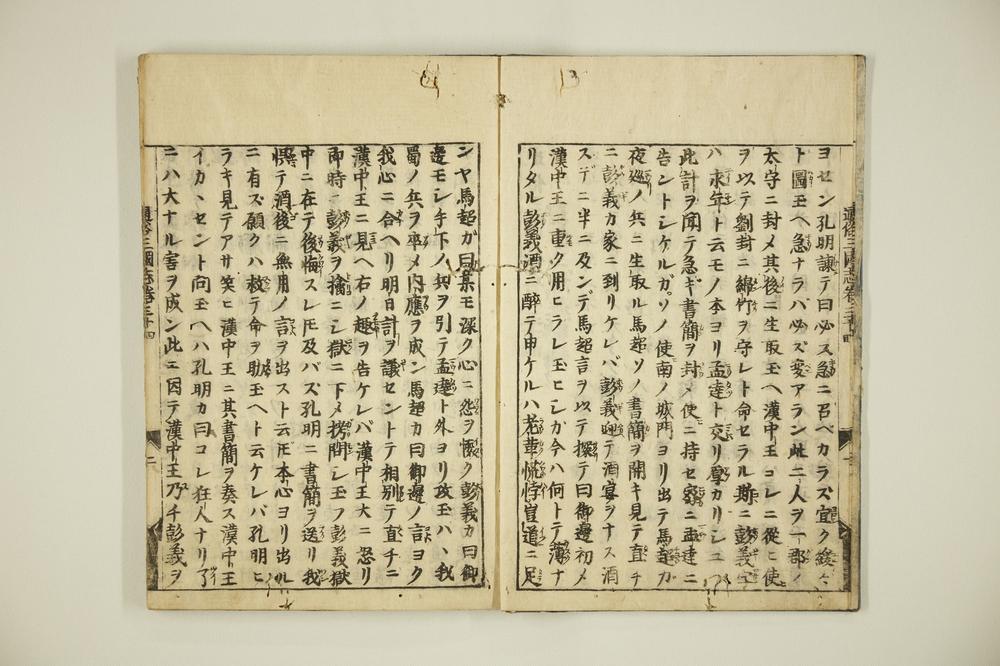 ヨセン孔明諫テ曰必ス急ニ召ベカラズ宜ク緩々
ト圖玉ヘ急ナラバ必ズ変アラン此二人ヲ一郡ノ
太守ニ封メ其後ニ生取玉ヘ漢中王コレニ從ヒ使
ヲ以テ劉封ニ綿竹ヲ守レト命セラル斯ニ彭義
ハ永年ト云モノ本ヨリ孟達ト交リ厚カリシユ
此計ヲ聞テ急ギ書簡ヲ封メ使ニ持セ密ニ孟達ニ
告ントシケルカソノ使南ノ城門ヨリ出テ馬超カ
夜廻ノ兵ニ生取ル馬超ソノ書簡ヲ開キ見テ直チ
ニ彭義カ家ニ到リケレバ彭義迎テ酒宴ヲナス酒
スデニ半ニ及ンデ馬超言ヲ以テ探テ曰御邊初メ
漢中王ニ重ク用ヒラレ玉ヒシカ今ハ何トテ薄ナ
リタル彭義酒ニ醉テ申ケルハ老革慌悖豈道ニ足
ンヤ馬超ガ曰某モ深ク心ニ怨ヲ懐ク彭義カ曰御
邊モシ手下ノ兵ヲ引テ孟達ト外ヨリ攻玉ハヽ我
蜀ノ兵ヲ卒メ内應ヲ成ン馬超カ曰御邊ノ言ヨク
我心ニ合ヘリ明日計ヲ議セントテ相別テ直チニ
漢中王ニ見ヘ右ノ趣ヲ告ケレバ漢中王大ニ怒リ
即時ニ彭義ヲ擒ニシ獄ニ下メ拷問シ玉フ彭義獄
中ニ在テ後悔スレ𪜈及バズ孔明ニ書簡ヲ送リ我
悞テ酒後ニ無用ノ言ヲ出スト云𪜈本心ヨリ出ル
ニ有ズ願クハ救テ命ヲ助玉ヘト云ケレバ孔明ヒ
ラキ見テアサ笑ヒ漢中王ニ其書簡ヲ奏ス漢中王
イカヽセント向玉ヘハ孔明カ曰コレ狂人ナリ了
ニハ大ナル害ヲ成ン此ニ因テ漢中王乃チ彭義ヲ
通俗三國志卷三十四